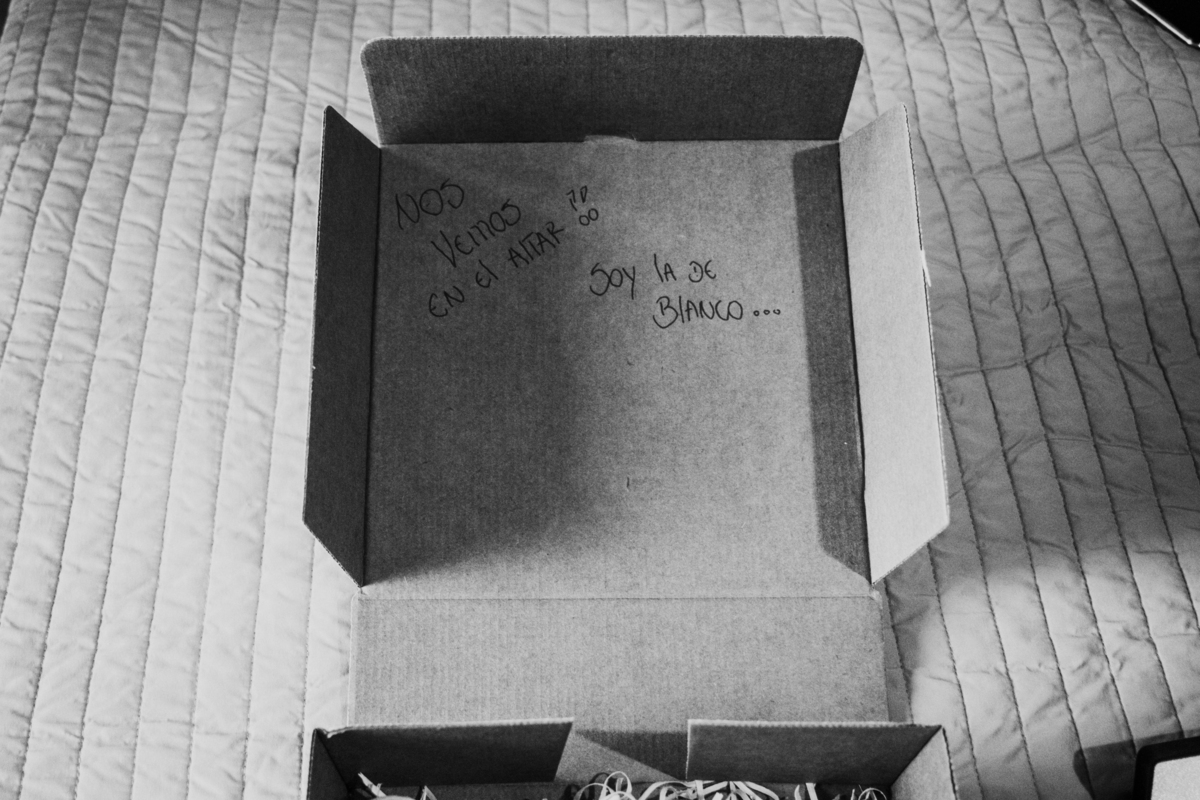 NOS
VEMOS
EN El AltAR !!
SOY lA DE
BlANCO...